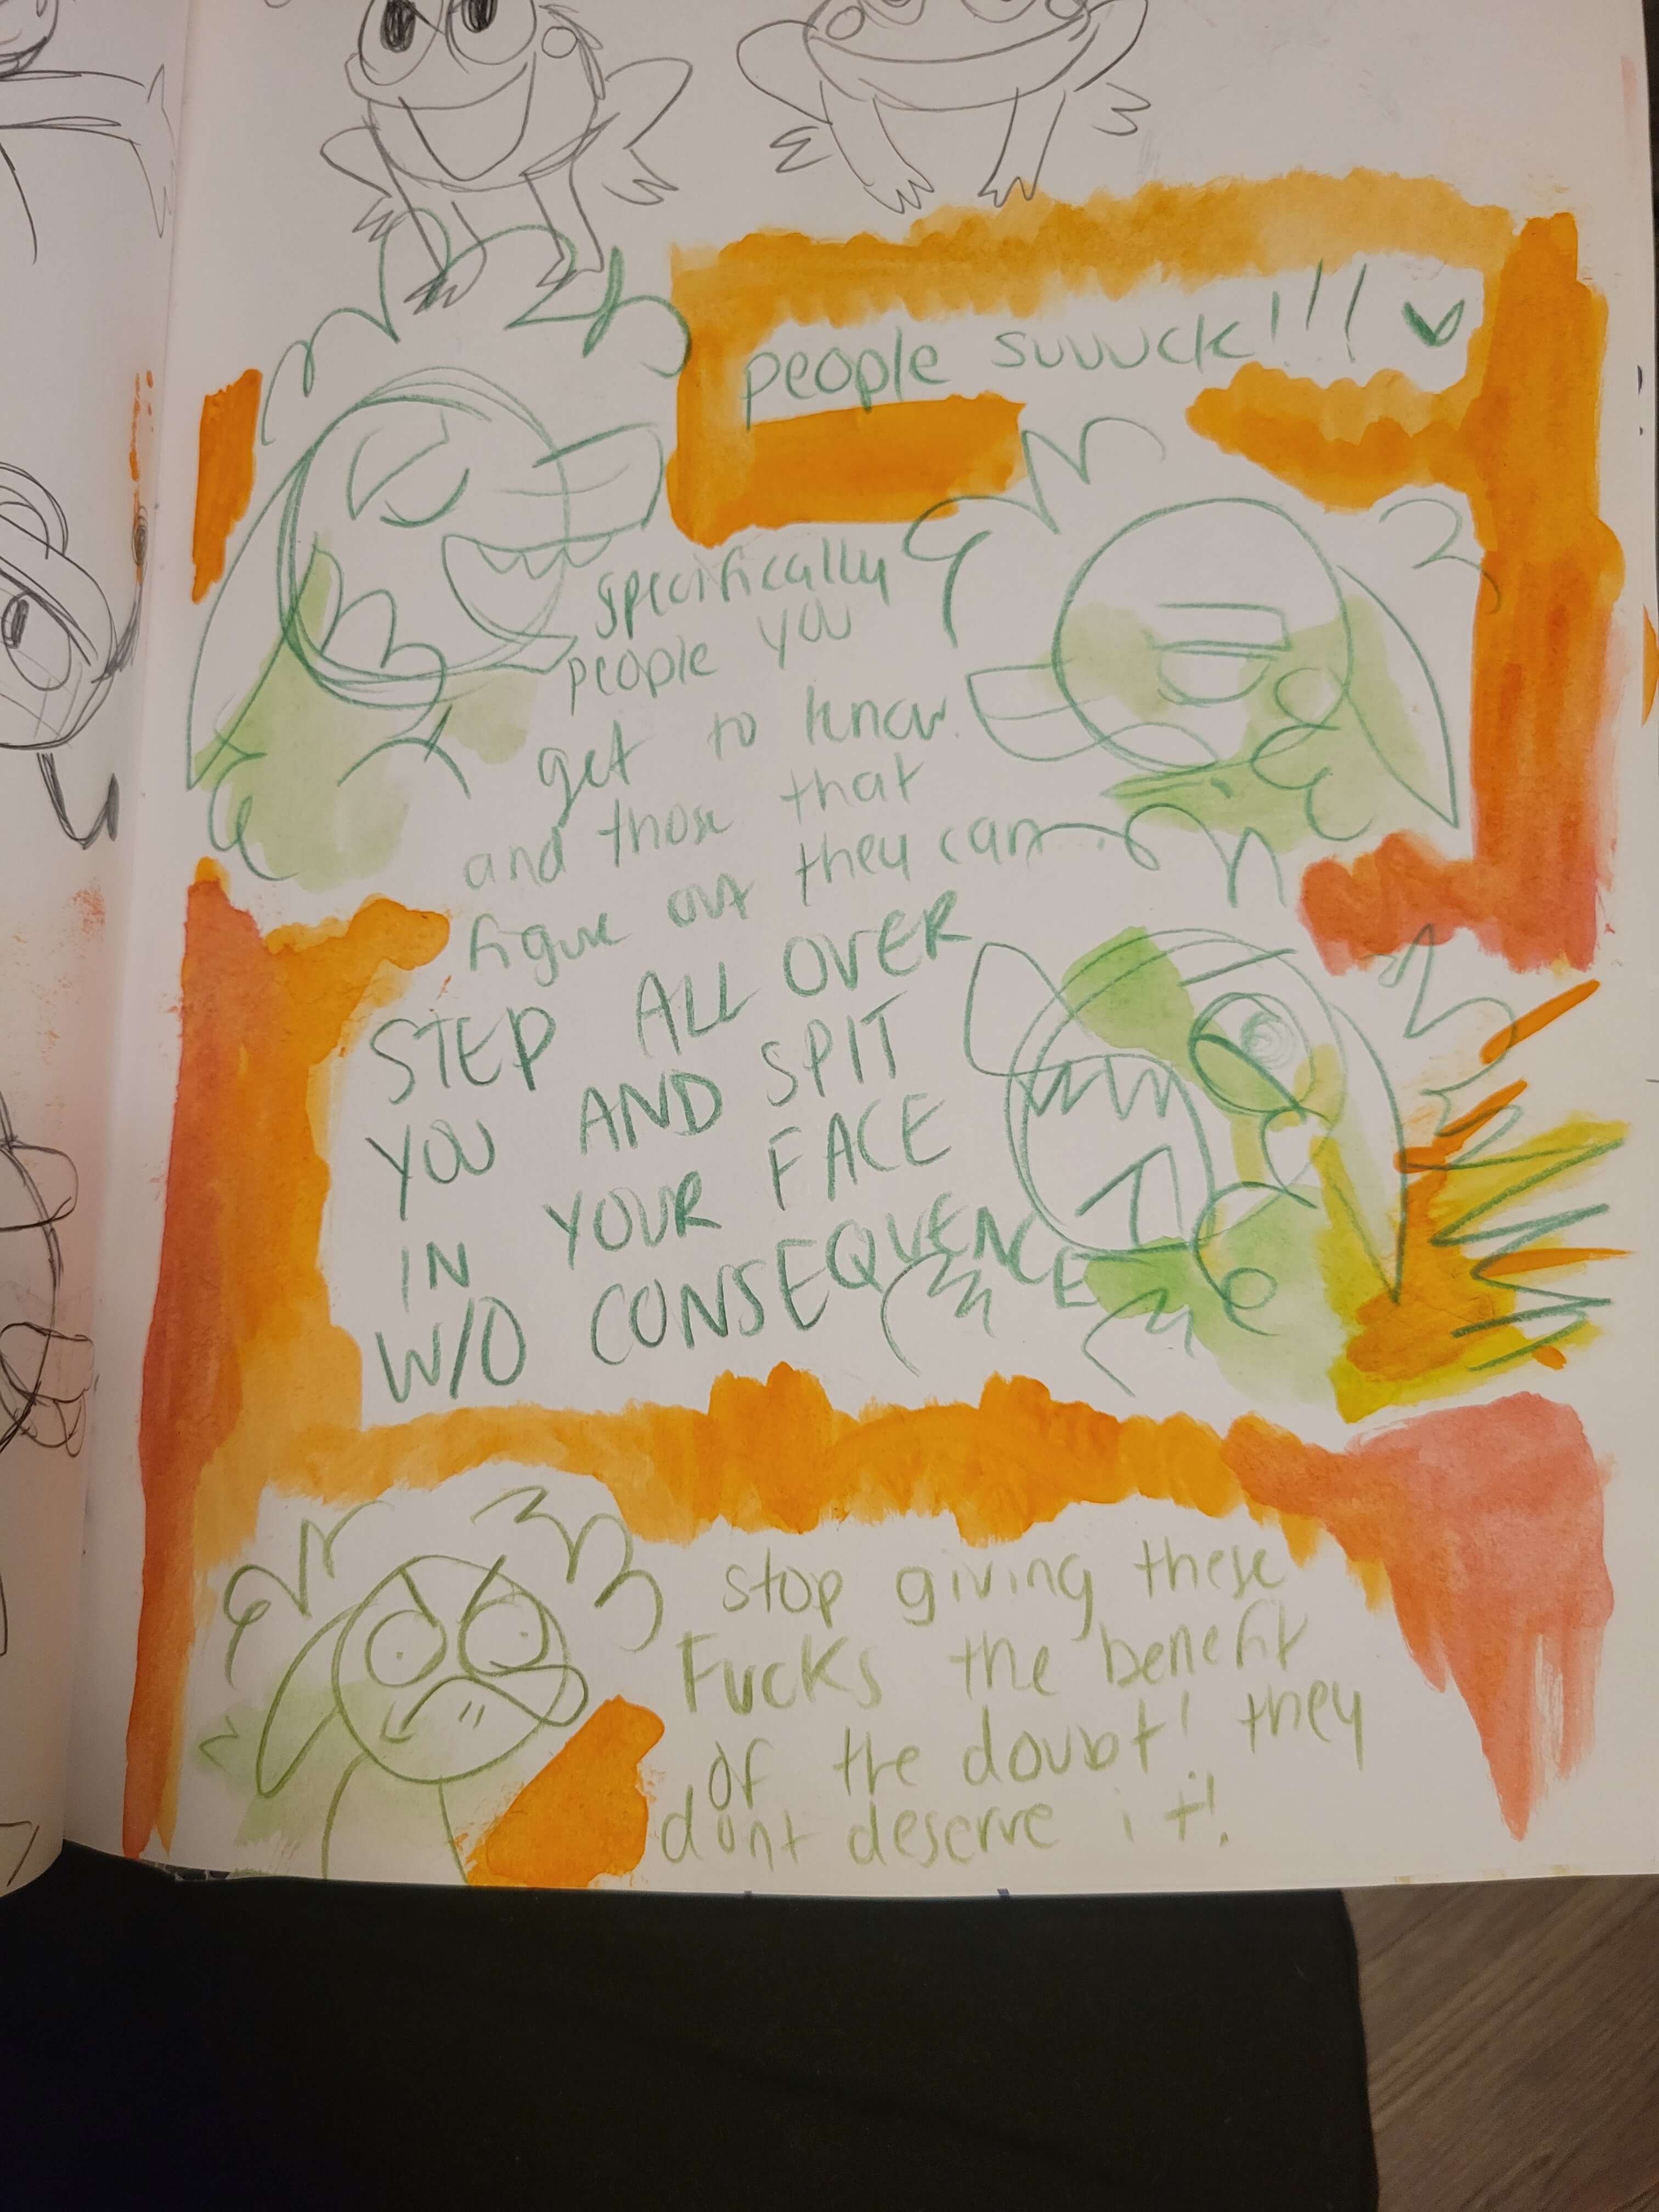 people suuuck!!!
specifically
people you
get to know.
and those that
figure out they can
STEP ALL OVER
YOU AND SPIT
IN YOUR FACE
W/O CONSEQUENCE
stop giving these
Fucks the benefit
of the doubt! they
dont deserve it!